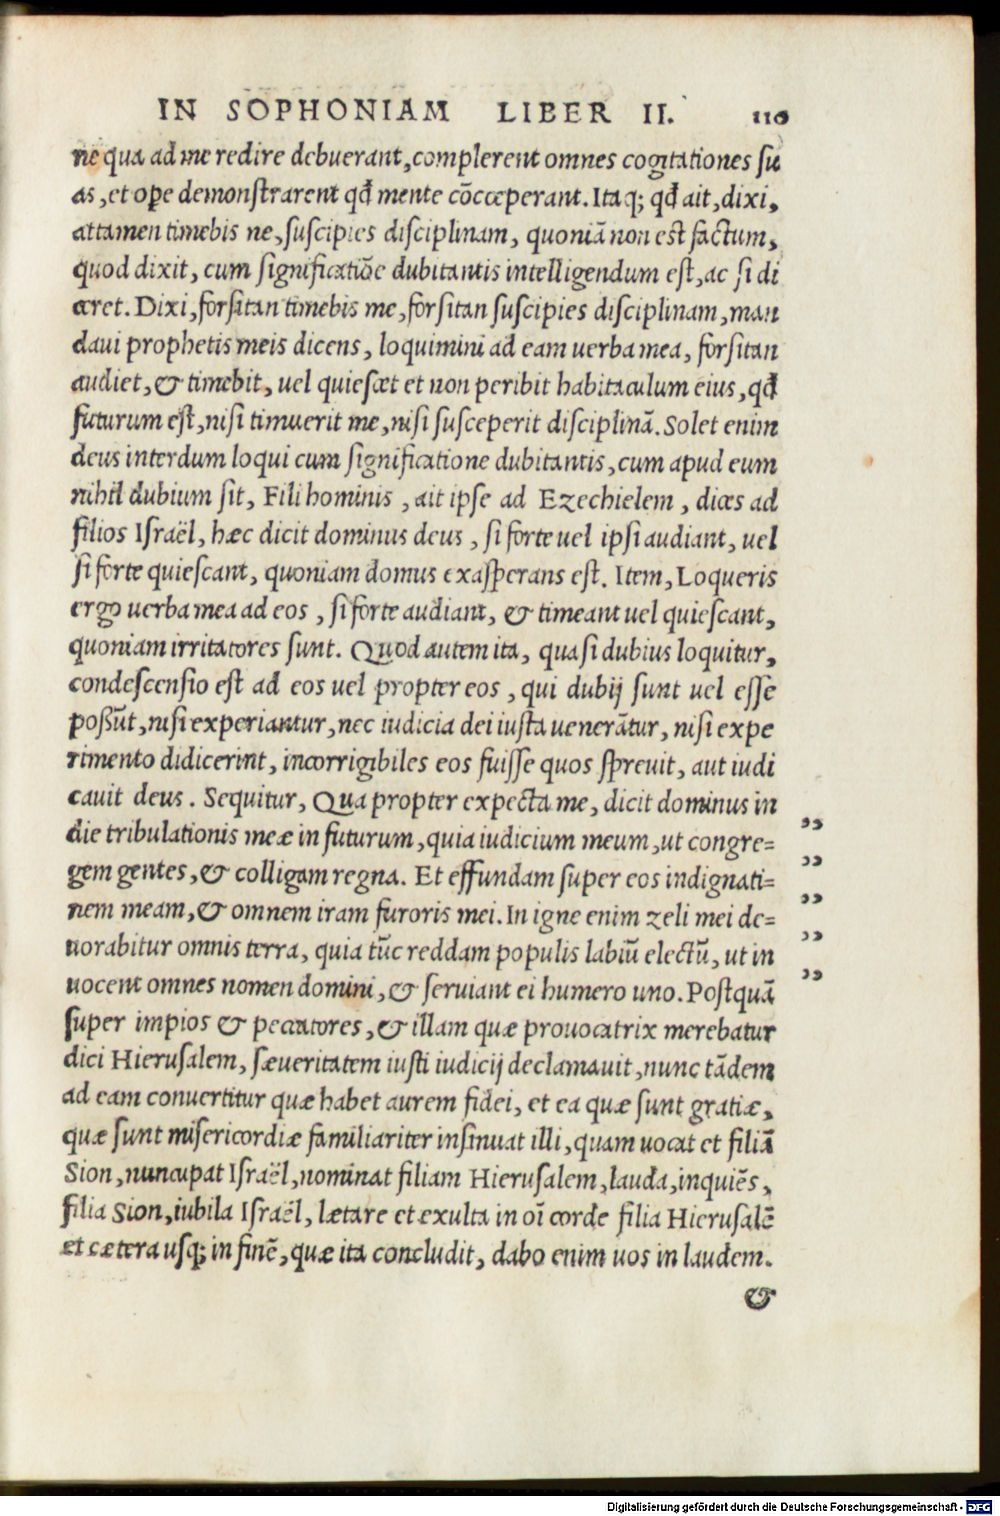 IN SOPHONIAM LIBER II. 110
ne qua ad me redire debuerant, complerent omnes cogitationes su
as, et ope demonstrarent qđ mente cōcœperant. Itaq; qđ ait, dixi,
attamen timebis ne, suscipies disciplinam, quoniā non est factum,
quod dixit, cum significatiōe dubitantis intelligendum est, ac si di
ceret. Dixi, forsitan timebis me, forsitan suscipies disciplinam, man
daui prophetis meis dicens, loquimini ad eam uerba mea, forsitan
audiet, & timebit, uel quiescet et non peribit habitaculum eius, qđ
futurum est, nisi timuerit me, nisi susceperit disciplinā. Solet enim
deus interdum loqui cum significatione dubitantis, cum apud eum
nihil dubium sit, Fili hominis, ait ipse ad Ezechielem, dices ad
filios Israël, hæc dicit dominus deus, si forte uel ipsi audiant, uel
si forte quiescant, quoniam domus exasperans est. Item, Loqueris
ergo uerba mea ad eos, si forte audiant, & timeant uel quiescant,
quoniam irritatores sunt. Quod autem ita, quasi dubius loquitur,
condescensio est ad eos uel propter eos, qui dubij sunt uel esse
possūt, nisi experiantur, nec iudicia dei iusta uenerātur, nisi expe
rimento didicerint, incorrigibiles eos fuisse quos spreuit, aut iudi
cauit deus. Sequitur, Qua propter expecta me, dicit dominus in
die tribulationis meæ in futurum, quia iudicium meum, ut congre= ,,
gem gentes, & colligam regna. Et effundam super eos indignati= ,,
nem meam, & omnem iram furoris mei. In igne enim zeli mei de= ,,
uorabitur omnis terra, quia tūc reddam populis labiū electū, ut in ,,
uocent omnes nomen domini, & seruiant ei humero uno. Postquā ,,
super impios & peccatores, & illam quæ prouocatrix merebatur
dici Hierusalem, sæueritatem iusti iudicij declamauit, nunc tādem
ad eam conuertitur quæ habet aurem fidei, et ea quæ sunt gratiæ,
quæ sunt misericordiæ familiariter insinuat illi, quam uocat et filiā
Sion, nuncupat Israël, nominat filiam Hierusalem, lauda, inquiēs,
filia Sion, iubila Israël, lætare et exulta in oī corde filia Hierusalē
et cætera usq; in finē, quæ ita concludit, dabo enim uos in laudem.
&
Digitalisierung gefördert durch die Deutsche Forschungsgemeinschaft - DFG